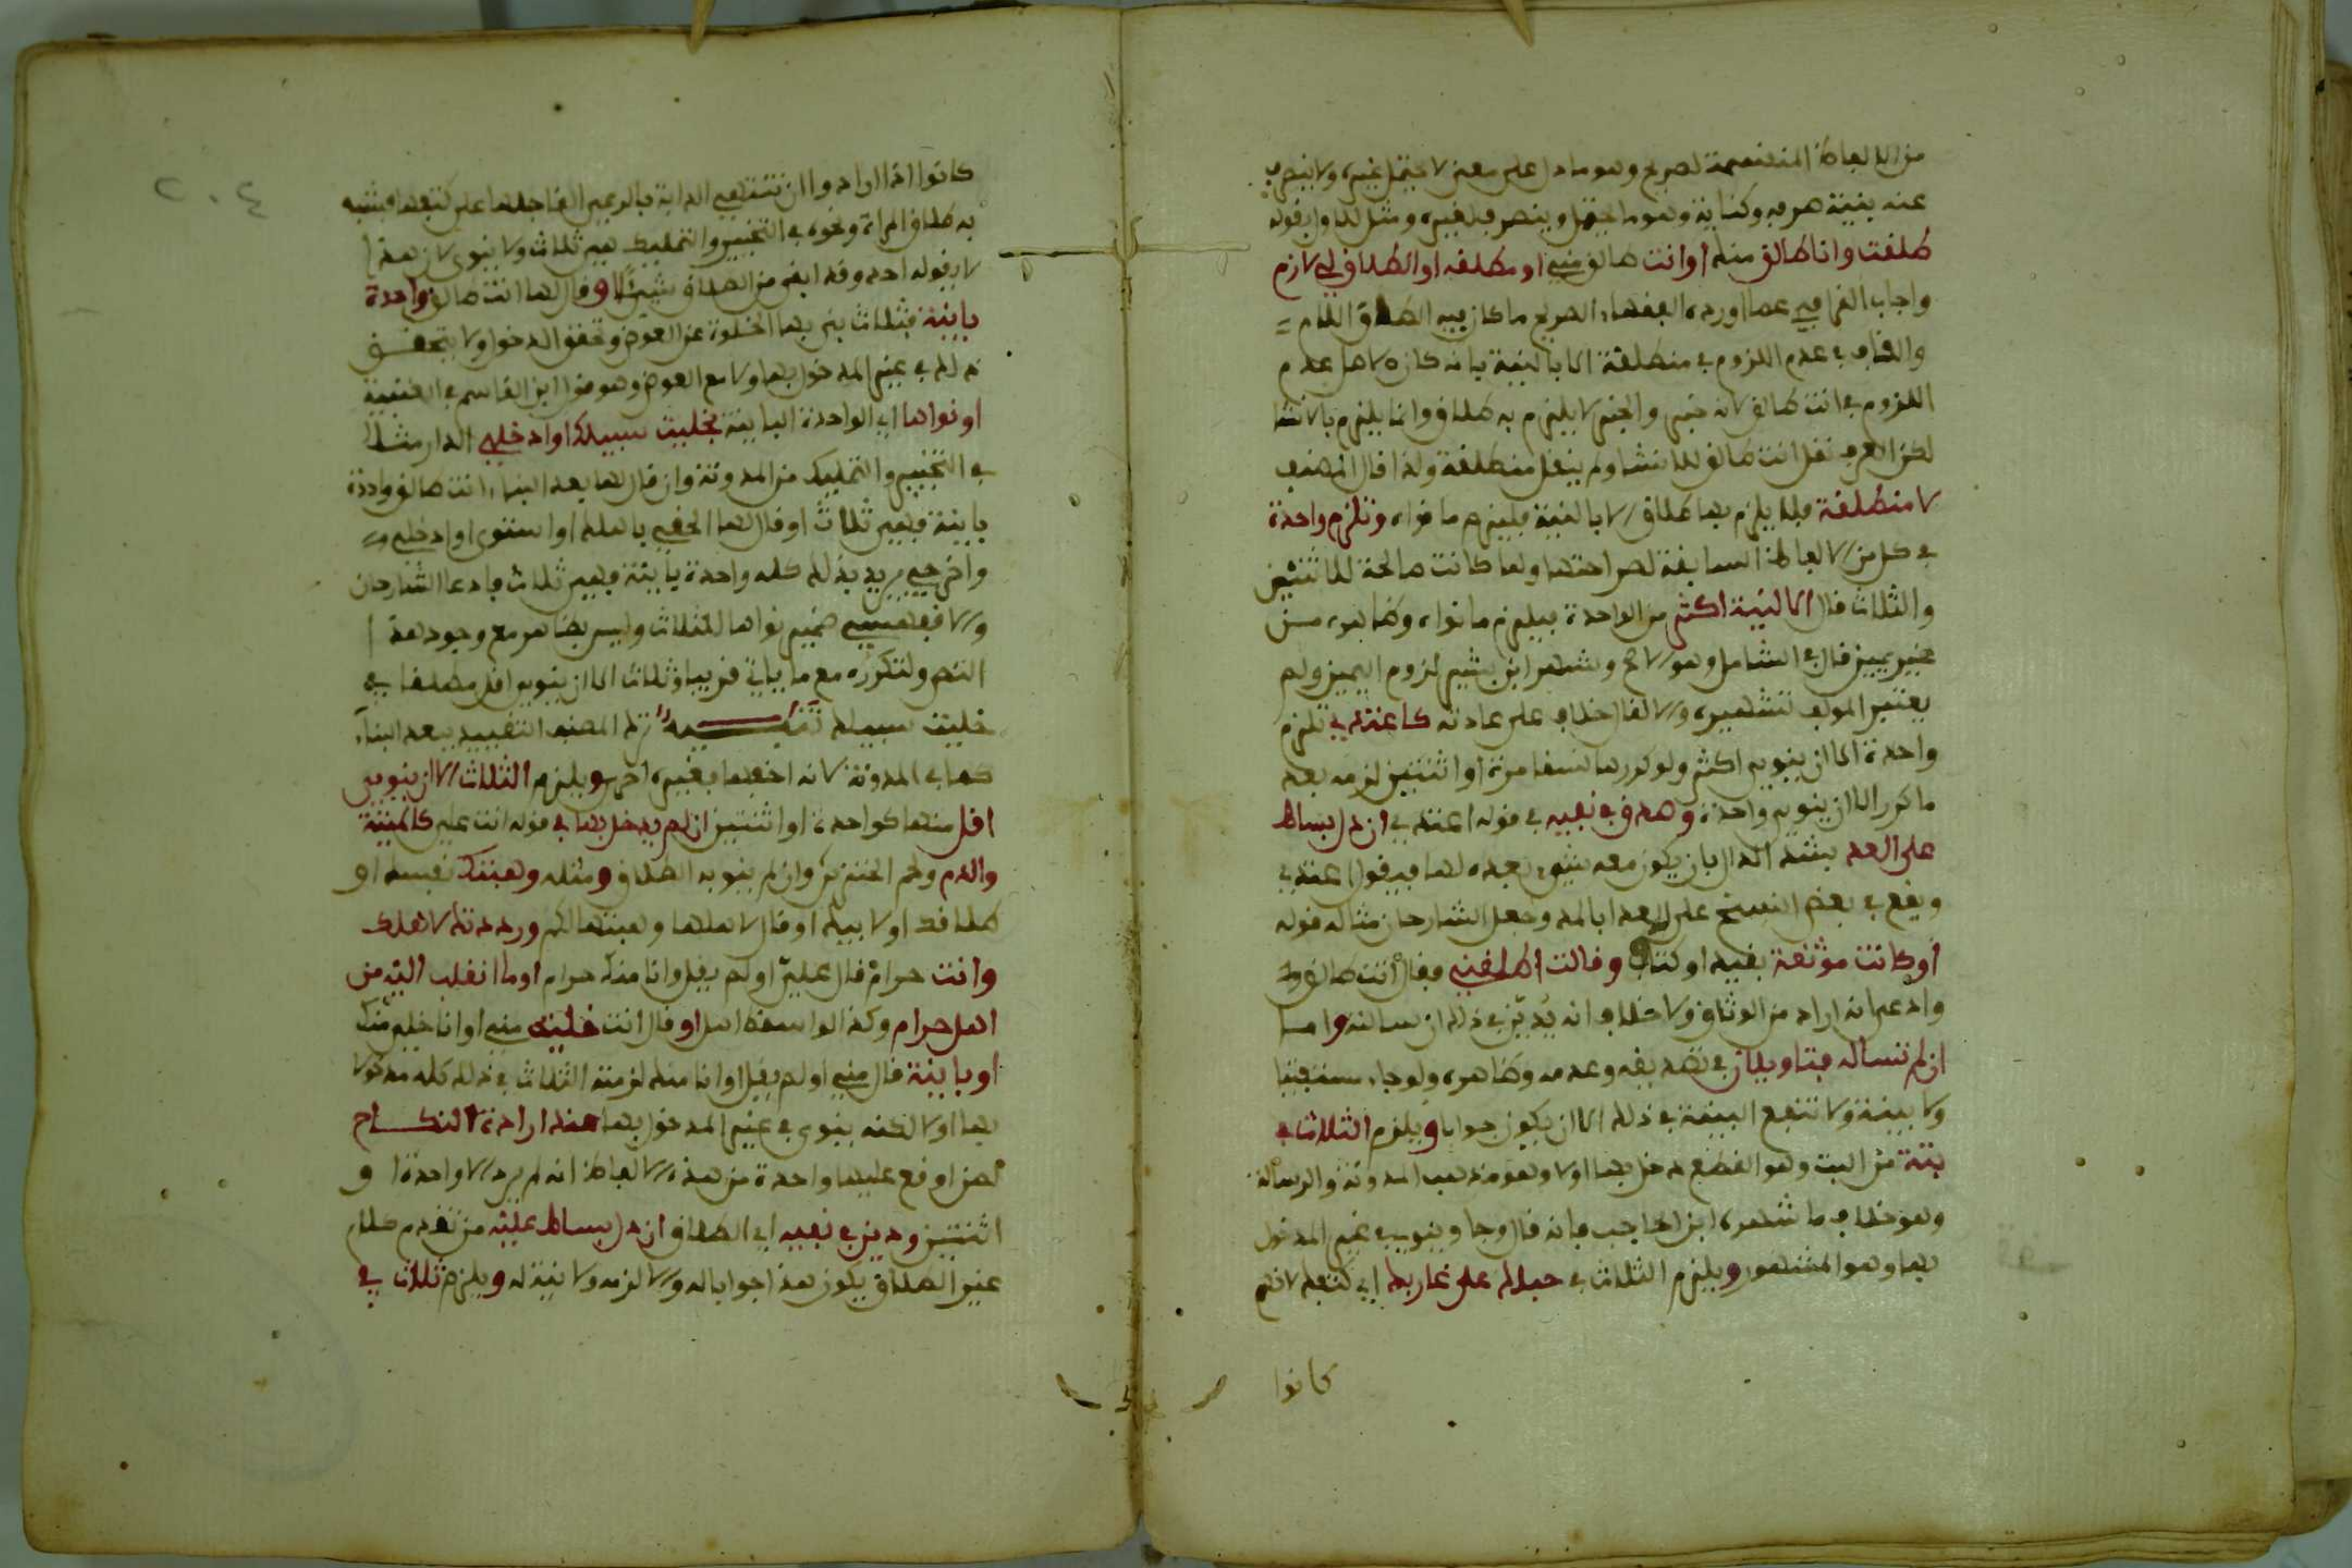 من الالفاظ المنقسمة لصريح وهو ما دل على معنى لا يحتمل غيره ولا ينصرف
عنه بنية صرفه وكناية وهو ما يحتمل وينصرف لغيره ومثل للاول بقوله
طلقت وانا طالق منك او انت طالق مني او مطلقة او الطلاق لي لازم
واجاب القرافي عما اورده الفقهاء الصريح ما كان فيه الطلاق اللام
في عدم اللزوم في منطلقة الا بالنية بانه كان الاصل عدم
اللزوم في انت طالق لانه خبر والخبر لا يلزم به طلاق وانما يلزم بالانشا
لكن العرف نقل انت طالق للانشا ولم ينقل منطلقة ولذا قال المصنف
لا منطلقة فلا يلزم بها طلاق الا بالنية فيلزم ما نواه وتلزم واحدة
في كل من الالفاظ السابقة لصراحتها ولما كانت صالحة للاثنتين
والثلاث قال الا لنية اكثر من الواحدة فيلزم ما نواه وظاهره من
غير يمين قال في الشامل وهو الاصح وشهر ابن بشير لزوم اليمين ولم
يعتبر المولف تشهيره والا لقال خلاف على عادته كاعتدي تلزم
واحدة الا ان ينوي اكثر ولو كررها نسقا مرة او اثنتين لزمه بعد
ما كرر الا ان ينوي واحدة وصدق في نفيه في قوله اعتدي ان دل بساط
على العد بشد الدال بان يكون معه شيء يعده لها فيقول اعتدي
ويقع في بعض النسخ على العدا بالمد وجعل الشارحان مثاله قوله
او كانت موثقة بقيد او كتاف وقالت اطلقني فقال انت طالق
وادعى انه اراد من الوثاق ولا خلاف انه يدين في ذلك ان سالته واما
ان لم تساله فتاويلان في تصديقه وعدمه وظاهره ولو جاء مستفتيا
ولا بينة ولا تنفع البينة في ذلك الا ان يكون جوابا ويلزم الثلاث في
بتة من البت وهو القطع دخل بها اولا وهو مذهب المدونة والرسالة
وهو خلاف ما شهره ابن الحاجب فانه قال وجا وينوي في غير المدخول
بها وهو المشهور ويلزم الثلاث في حبلك على غاربك اي كتفك لانهم
كانوا
٢٠٤
كانوا اذا ارادوا ان تنتهي الدابة بالرعي القى حبلها على كتفها فشبه
به طلاق المراة ونحوه في التخيير والتمليك هي ثلاث ولا ينوي لان هذا
لا يقوله احد وقد ابقى من الطلاق شيئا او قال لها انت طالق واحدة
باينة فثلاث بني بها الخلوة عن العوض وتحقق الدخول ولا يتحقق
ذلك في غير المدخول بها ولا مع العوض وهو قول ابن القاسم في العتبية
او نواها اي الواحدة الباينة بخليت سبيلك او ادخلي الدار مثلا
في التخيير والتمليك من المدونة وان قال لها بعد البناء انت طالق واحدة
باينة فهي ثلاث او قال لها الحقي باهلك او استتري او ادخلي
واخرجي يريد بذلك كله واحدة باينة فهي ثلاث وادعا الشارحان
والاقفهسي ضمير نواها للثلاث وليس بظاهر مع وجود هذا
النص ولتكرره مع ما ياتي قريبا وثلاث الا ان ينوي اقل مطلقا في
خليت سبيلك تنبيه ترك المصنف التقييد ببعد البناء
كما في المدونة لانه اخصا بغيره احرى ويلزم الثلاث الا ان ينوي
اقل منها كواحدة او اثنتين ان لم يدخل بها في قوله انت علي كالميتة
والدم ولحم الخنزير وان لم ينو به الطلاق ومثله وهبتك نفسك او
طلاقك او لابيك او قال لاهلها وهبتها لكم ورددتك لاهلك
وانت حرام قال علي او لم يقل وانا منك حرام او ما انقلب اليه من
اهل حرام وكذا لو اسقط اهل او قال انت خلية مني او انا خلي منك
او باينة قال مني او لم يقل او انا منك لزمته الثلاث في ذلك كله مدخولا
بها اولا لكنه ينوي في غير المدخول بها عند ارادة النكاح
لمن اوقع عليها واحدة من هذه الالفاظ انه لم يرد الا واحدة او
اثنتين ودين في نفيه اي الطلاق ان دل بساط عليه من تقدم كلام
غير الطلاق يكون هذا جوابا له والا لزمه ولا نية له ويلزم ثلاث في